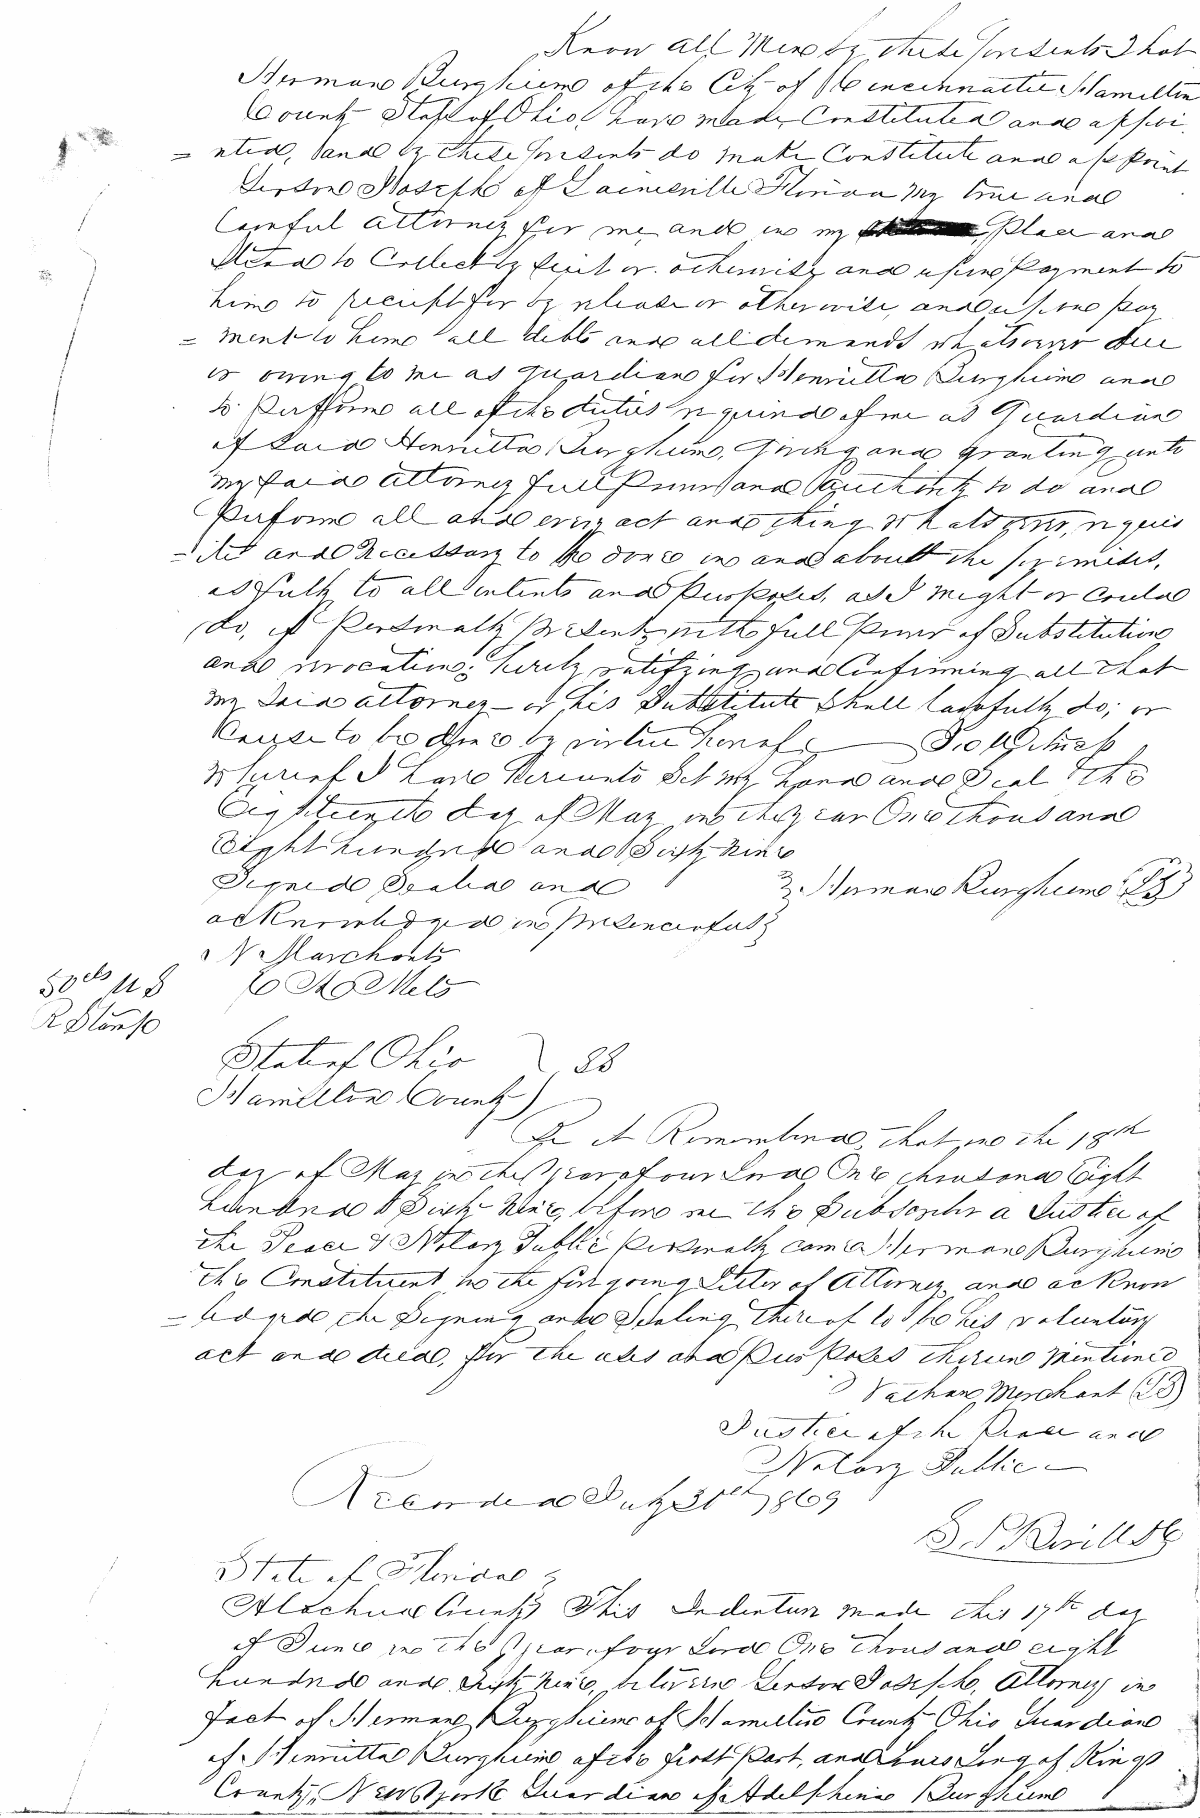 Know all Men by these presents That
Herman Burgheim of the City of Cincinnattie Hamilton
County State of Ohio, have made, Constituted and appoi
= nted, and by these presents do make Constitute and appoint
Gerson Joseph of Gainesville Florida my true and
Lawful attorney for me, and in my Place and
Stead to Collect by suit or otherwise and upon Payment to
him to receipt for by release or otherwise, and upon pay
= ment to him all debts and all demands whatsoever due
or owing to me as guardian for Henrietta Burgheim and
to Perform all of the duties required of me as Guardian
of said Henrietta Burgheim, giving and granting unto
my said attorney full Power and Authority to do and
Perform all and every act and thing whatsoever, requis
= ite and Necessary to be done in and about the premises,
as fully to all intents and Purposes, as I might or could
do, if Personally Present, with full Power of Substitution
and revocation; hereby ratifying and Confirming all that
my Said attorney or his Substitute Shall lawfully do, or
Cause to be done by virtue hereof, In Witness
Whereof I have hereunto Set my hand and Seal the
Eighteenth day of May in the year One thousand
Eight hundred and Sixty Nine
Signed Sealed and } Herman Burgheim (LS)
acknowledged in presence of us }
N Marchants
50cts U S
R Stamp
State of Ohio } SS
Hamilton County )
Be it Remembered, that on the 18th
day of May in the year of our Lord One thousand Eight
hundred & Sixty Nine, before me the Subscriber a Justice of
the Peace & Notary Public Personally came Herman Burgheim
the Constituent in the foregoing Letter of Attorney and acknow
= ledged the Signing and Sealing thereof to be his voluntary
act and deed, for the uses and Purposes therein mentioned
Nathan Marchant (LS)
Justice of the Peace and
Notary Public
Recorded July 31st 1869
State of Florida }
Alachua County } This Indenture made this 17th day
of June in the year of our Lord One thousand eight
hundred and Sixty Nine, between Gerson Joseph, Attorney in
fact of Herman Burgheim of Hamilton County Ohio Guardian
of Henrietta Burgheim of the first Part, and Louis Long of Kings
County, New York Guardian of Adelphina Burgheim